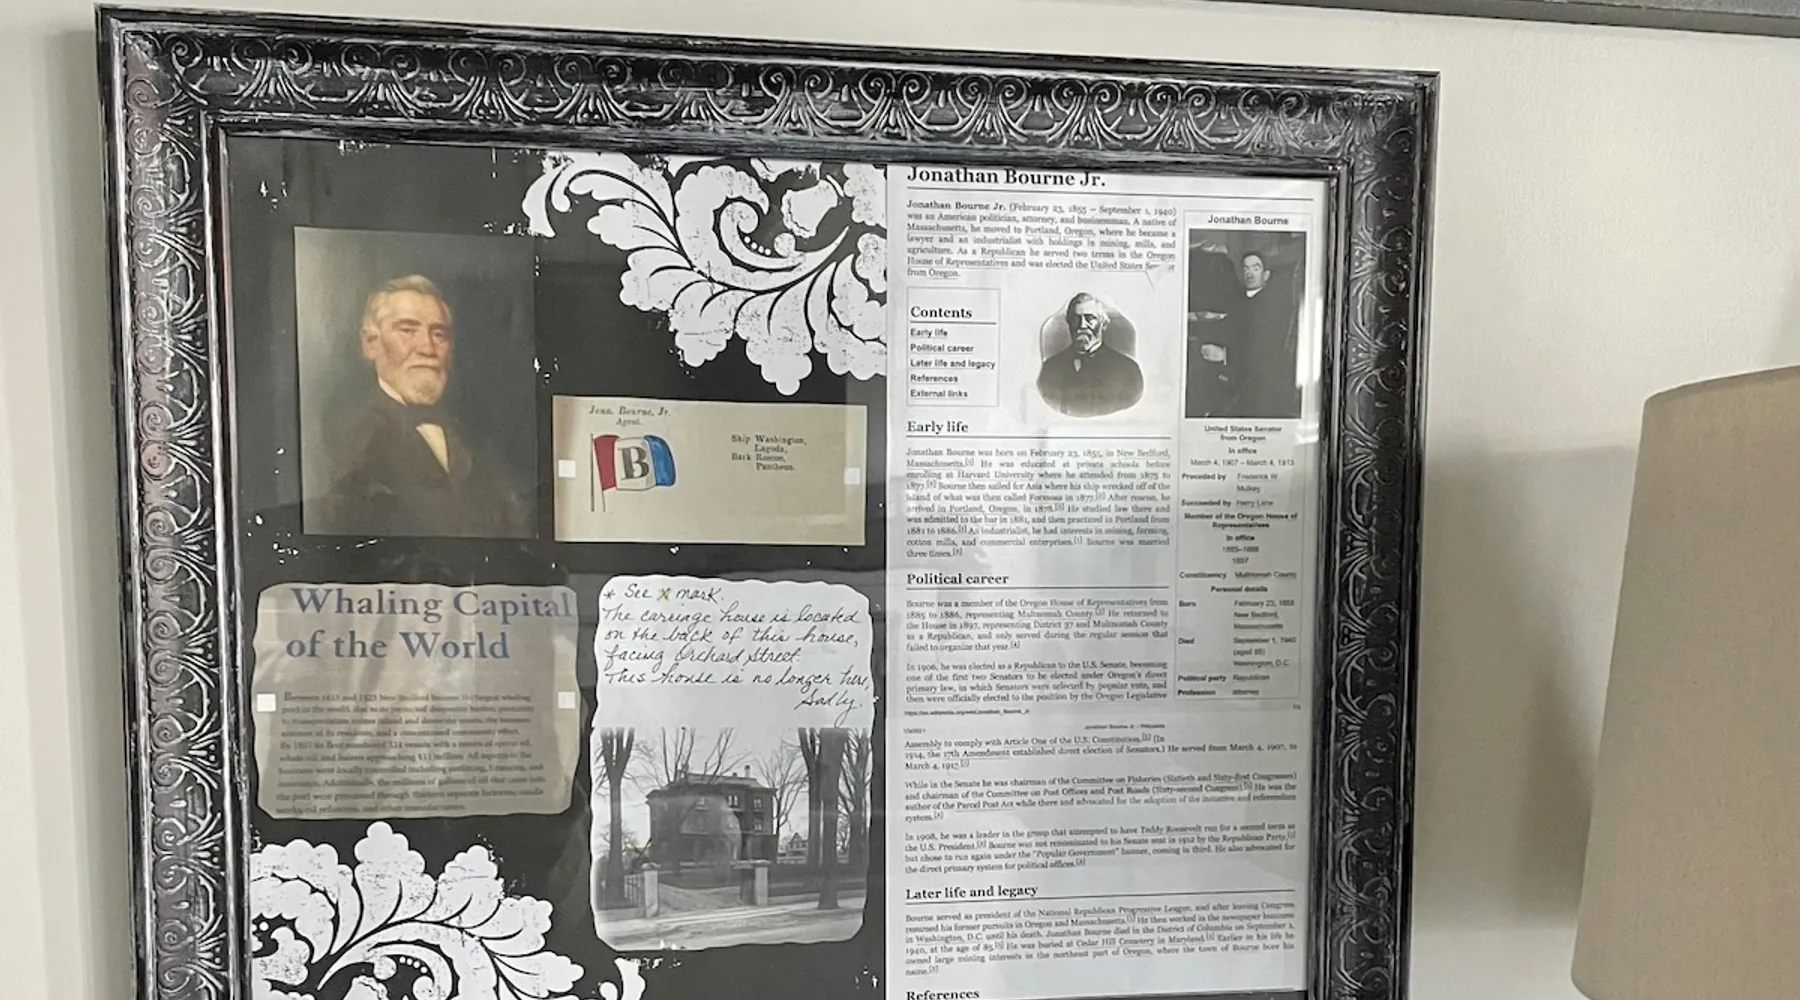 Jona. Bourne, Jr.
Agent.
B
Ship Washington,
Lagoda,
Bark Roscoe,
Pantheon.
Whaling Capital
of the World
Between 1823 and 1825 New Bedford became the largest whaling
port in the world, due to its
* See x mark.
The carriage house is located
on the back of this house,
facing Orchard Street.
This house is no longer here,
Sadly.
Jonathan Bourne Jr.
Jonathan Bourne Jr. (February 23, 1855 – September 1, 1940)
was an American politician, attorney, and businessman. A native of
Massachusetts, he moved to Portland, Oregon, where he became a
lawyer and an industrialist with holdings in mining, mills, and
agriculture. As a Republican he served two terms in the Oregon
House of Representatives and was elected the United States
from Oregon.
Contents
Early life
Political career
Later life and legacy
References
External links
Early life
Jonathan Bourne was born on February 23, 1855, in New Bedford,
Massachusetts.[1] He was educated at private schools before
enrolling at Harvard University where he attended from 1875 to
1877.[2] Bourne then sailed for Asia where his ship wrecked off of the
island of what was then called Formosa in 1877.[2] After rescue, he
arrived in Portland, Oregon, in 1878.[2] He studied law there and
was admitted to the bar in 1881, and then practiced in Portland from
1881 to 1886.[2] An industrialist, he had interests in mining, farming,
cotton mills, and commercial enterprises.[1] Bourne was married
three times.[2]
Political career
Bourne was a member of the Oregon House of Representatives from
1885 to 1886, representing Multnomah County.[3] He returned to
the House in 1897, representing District 37 and Multnomah County
as a Republican, and only served during the regular session that
failed to organize that year.[4]
In 1906, he was elected as a Republican to the U.S. Senate, becoming
one of the first two Senators to be elected under Oregon's direct
primary law, in which Senators were selected by popular vote, and
then were officially elected to the position by the Oregon Legislative
Jonathan Bourne
United States Senator
from Oregon
In office
March 4, 1907 – March 4, 1913
Preceded by Frederick W.
Mulkey
Succeeded by Harry Lane
Member of the Oregon House of
Representatives
In office
1885–1886
1897
Constituency Multnomah County
Personal details
Born February 23, 1855
New Bedford,
Massachusetts
Died September 1, 1940
(aged 85)
Washington, D.C.
Political party Republican
Profession attorney
Jonathan Bourne Jr. - Wikipedia
Assembly to comply with Article One of the U.S. Constitution.[5] (In
1914, the 17th Amendment established direct election of Senators.) He served from March 4, 1907, to
March 4, 1913.[1]
While in the Senate he was chairman of the Committee on Fisheries (Sixtieth and Sixty-first Congresses)
and chairman of the Committee on Post Offices and Post Roads (Sixty-second Congress).[1] He was the
author of the Parcel Post Act while there and advocated for the adoption of the initiative and referendum
system.[2]
In 1908, he was a leader in the group that attempted to have Teddy Roosevelt run for a second term as
the U.S. President.[2] Bourne was not renominated to his Senate seat in 1912 by the Republican Party,[1]
but chose to run again under the "Popular Government" banner, coming in third. He also advocated for
the direct primary system for political offices.[2]
Later life and legacy
Bourne served as president of the National Republican Progressive League, and after leaving Congress
resumed his former pursuits in Oregon and Massachusetts.[1] He then worked in the newspaper business
in Washington, D.C. until his death. Jonathan Bourne died in the District of Columbia on September 1,
1940, at the age of 85.[1] He was buried at Cedar Hill Cemetery in Maryland.[1] Earlier in his life he
owned large mining interests in the northeast part of Oregon, where the town of Bourne bore his
name.[2]
References